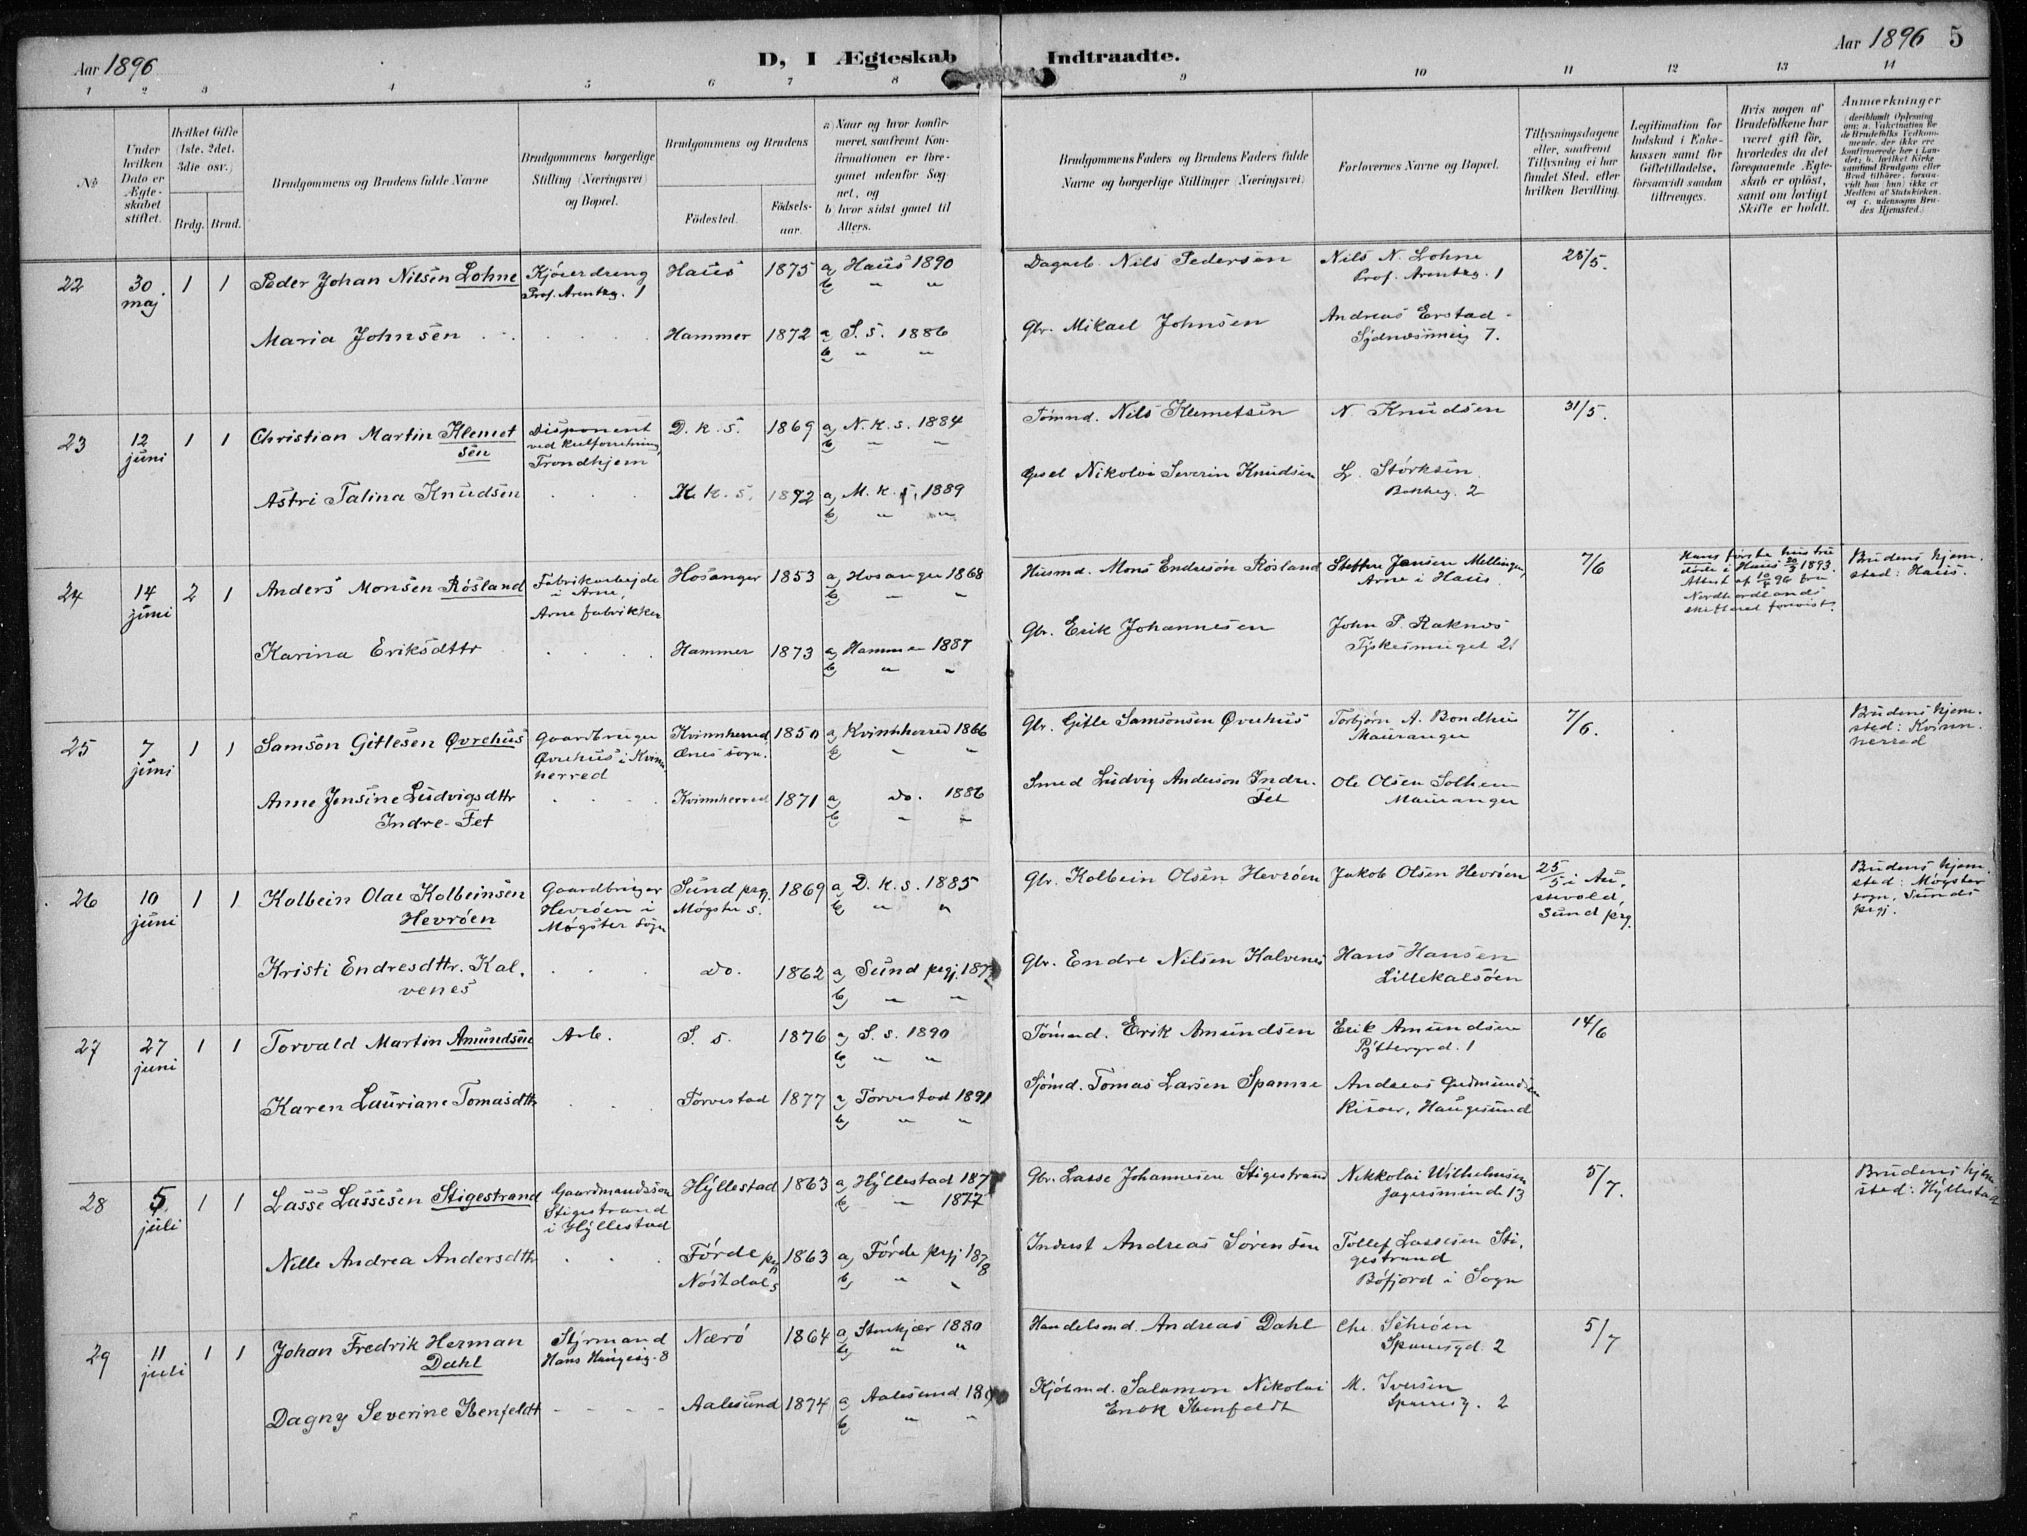 Aar 1896
D, I Ægteskab Indtraadte.
Aar 1896 5
1 2 3 4 5 6 7 8 9 10 11 12 13 14
No
Under hvilken Dato er Ægteskabet stiftet.
Hvilket Gifte (1ste, 2det, 3die osv.)
Brdg. Brud.
Brudgommens og Brudens fulde Navne
Brudgommens borgerlige Stilling (Næringsvei) og Bopæl.
Brudgommens og Brudens
Fødested.
Fødselsaar.
a) Naar og hvor konfirmeret, saafremt Konfirmationen er foregaaet udenfor Sognet, og
b) hvor sidst gaaet til Alters.
Brudgommens Faders og Brudens Faders fulde Navne og borgerlige Stillinger (Næringsvei)
Forlovernes Navne og Bopæl.
Tillysningsdagene eller, saafremt Tillysning ei har fundet Sted, efter hvilken Bevilling.
Legitimation for Indskud i Enkekassen samt for Giftetilladelse, forsaavidt saadan tiltrænges.
Hvis nogen af Brudefolkene har været gift før, hvorledes da det foregaaende Ægteskab er opløst, samt om lovligt Skifte er holdt.
Anmærkninger
22 30 maj 1 1 Peder Johan Nilsen Lohne
Kjørerdreng
Prof. Arentzg. 1
Haus 1875 a) Haus 1890
b) " "
Dagarb. Nils Pedersen
Nils N. Lohne
Prof. Arentzg. 1
25/5.
Maria Johnsen
Hammer 1872 a) S. s. 1886
b) " "
Gbr. Mikael Johnsen
Andreas Erstad
Sydnæsmug 7.
23 12 juni 1 1 Christian Martin Klemetsen
Disponent
ved
Trondhjem
D. k. s. 1869 a) N. k. s. 1884
b) " "
Tømnd. Nils Klemetsen
N. Knudsen
31/5.
Astri Talina Knudsen
K. k. s. 1872 a) M. k. s. 1889
b) " "
Nikolai Severin Knudsen
L. Størksen
2
24 14 juni 2 1 Anders Monsen Røsland
Fabrikarbejde
i Arne,
Arne fabrikker
Hosanger 1853 a) Hosanger 1868
b) " "
Husmd. Mons Endresøn Røsland
Steffen Jansen Mellingen,
Arne i Haus.
7/6
Hans første hustru
døde i Haus 20/3 1893.
Attest af 10/6 96 fra
Nordhordlands
skifteret forevist.
Brudens hjemsted: Haus.
Karina Eriksdttr
Hammer 1873 a) Hammer 1887
b) " "
Gbr. Erik Johannesen
John P. Raknes
Tyskesmuget 21
25 7 juni 1 1 Samson Gitlesen Øvrehus
Gaardbruger
Øvrehus i Kvinnherred
Kvinnherred,
Ænes sogn.
1850 a) Kvinnherred 1866
b) " "
Gbr. Gitle Samsonsen Øvrehus
Torbjørn A. Bondhus
Mauranger
7/6.
Brudens hjemsted: Kvinnherred
Anne Jensine Ludvigsdttr
Indre-Fet
Kvinnherred 1871 a) do. 1886
b) " "
Smed Ludvig Anderson Indre-
Fet
Ole Olsen Solhem
Mauranger
26 10 juni 1 1 Kolbein Olai Kolbeinsen
Hevrøen
Gaardbruger
Hevrøen i
Møgster sogn
Sund prgj.
Møgster s.
1869 a) D. k. s. 1885
b) " "
Gbr. Kolbein Olsen Hevrøen
Jakob Olsen Hevrøen
25/5 i Austevold,
Sund prg.
Brudens hjemsted: Møgster
sogn, Sunds
prgj.
Kristi Endresdttr. Kalvenes
do. 1862 a) Sund prgj.
b) " "
Gbr. Endre Nilsen Kalvenes
Hans Hansen
Lillekalsøen
27 27 juni 1 1 Torvald Martin Amundsen
Arb.
S. s. 1876 a) S. s. 1890
b) " "
Tømmd. Erik Amundsen
Erik Amundsen
Pyttergrd. 1
14/6
Karen Lauriane Tomasdttr
Torvestad 1877 a) Torvestad 1891
b) " "
Sjømd. Tomas Larsen Spanne
Andreas Gudmundsen
Risøer, Haugesund
28 5 juli 1 1 Lasse Lassesen Stigestrand
Gaardmandssøn
Stigestrand
i Hyllestad
Hyllestad 1863 a) Hyllestad
b) " 1877
Gbr. Lasse Johannesen Stigestrand
Nikkolai Wilhelmsen
Jægersminde 13
5/7.
Brudens hjemsted: Hyllestad
Nille Andrea Andersdttr
Førde prgj
Nøstdal s
1863 a) Førde prgj 1878
b) " "
Inderst Andreas Sørensen
Tollef Lassesen Stigestrand
Bøfjord i Sogn
29 11 juli 1 1 Johan Fredrik Herman
Dahl
Styrmand
Hans Haugesg. 8
Nærø 1864 a) Stenkjær 1880
b) " "
Handelsmd. Andreas Dahl
Chr. Schrøen
2
5/7
Dagny Severine Ibenfeldt
Aalesund 1874 a) Aalesund
b) " "
Kjøbmd. Salamon Nikolai
Enok Ibenfeldt
M. Iversen
2